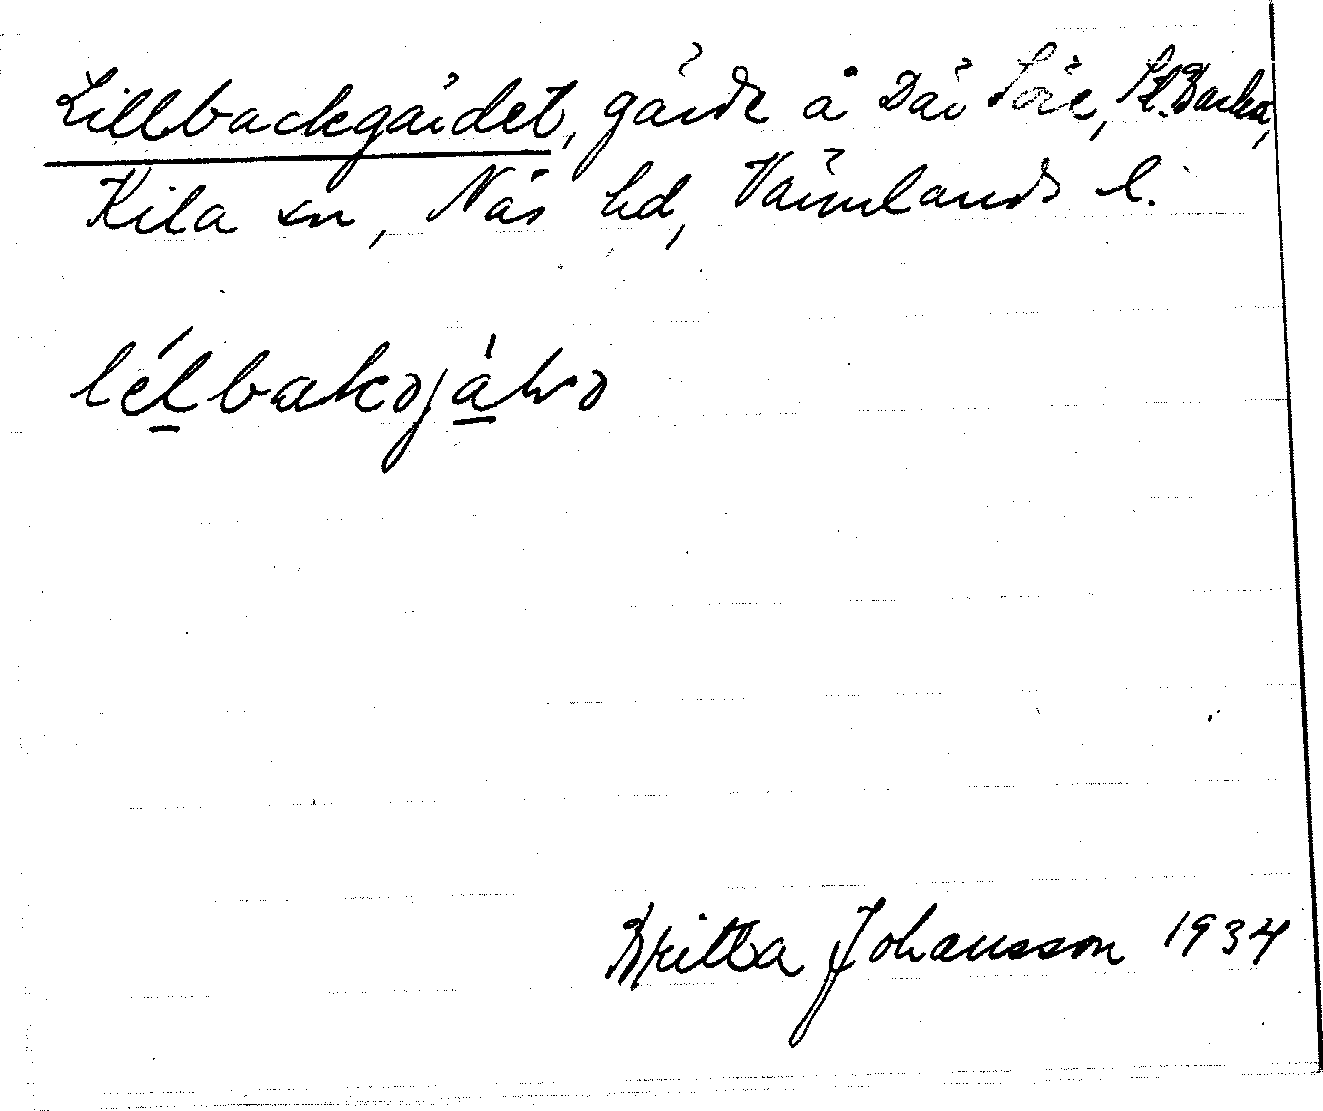 Lillbackgärdet, gärde å Där Före, St. Backa,
Kila sn, Näs hd, Värmlands l.
lélbakojáḷo
Britta Johansson 1934